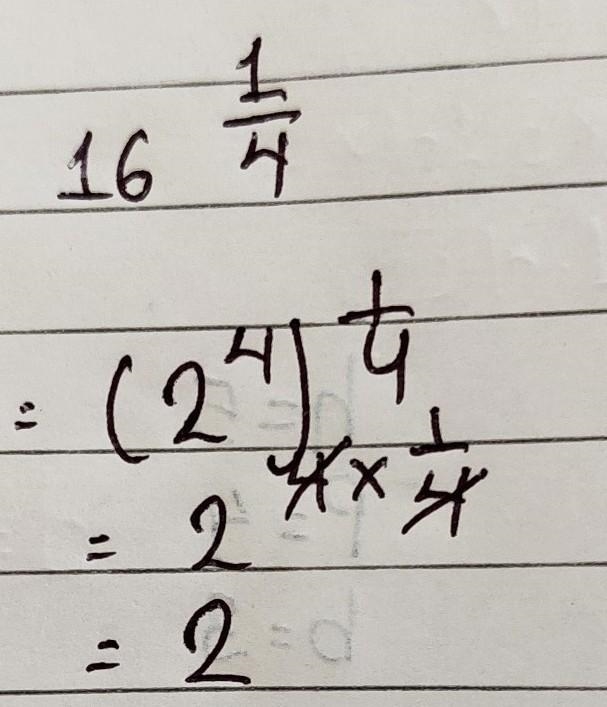 16^(1/4)
= (2^4)^(1/4)
= 2^(4 × 1/4)
= 2